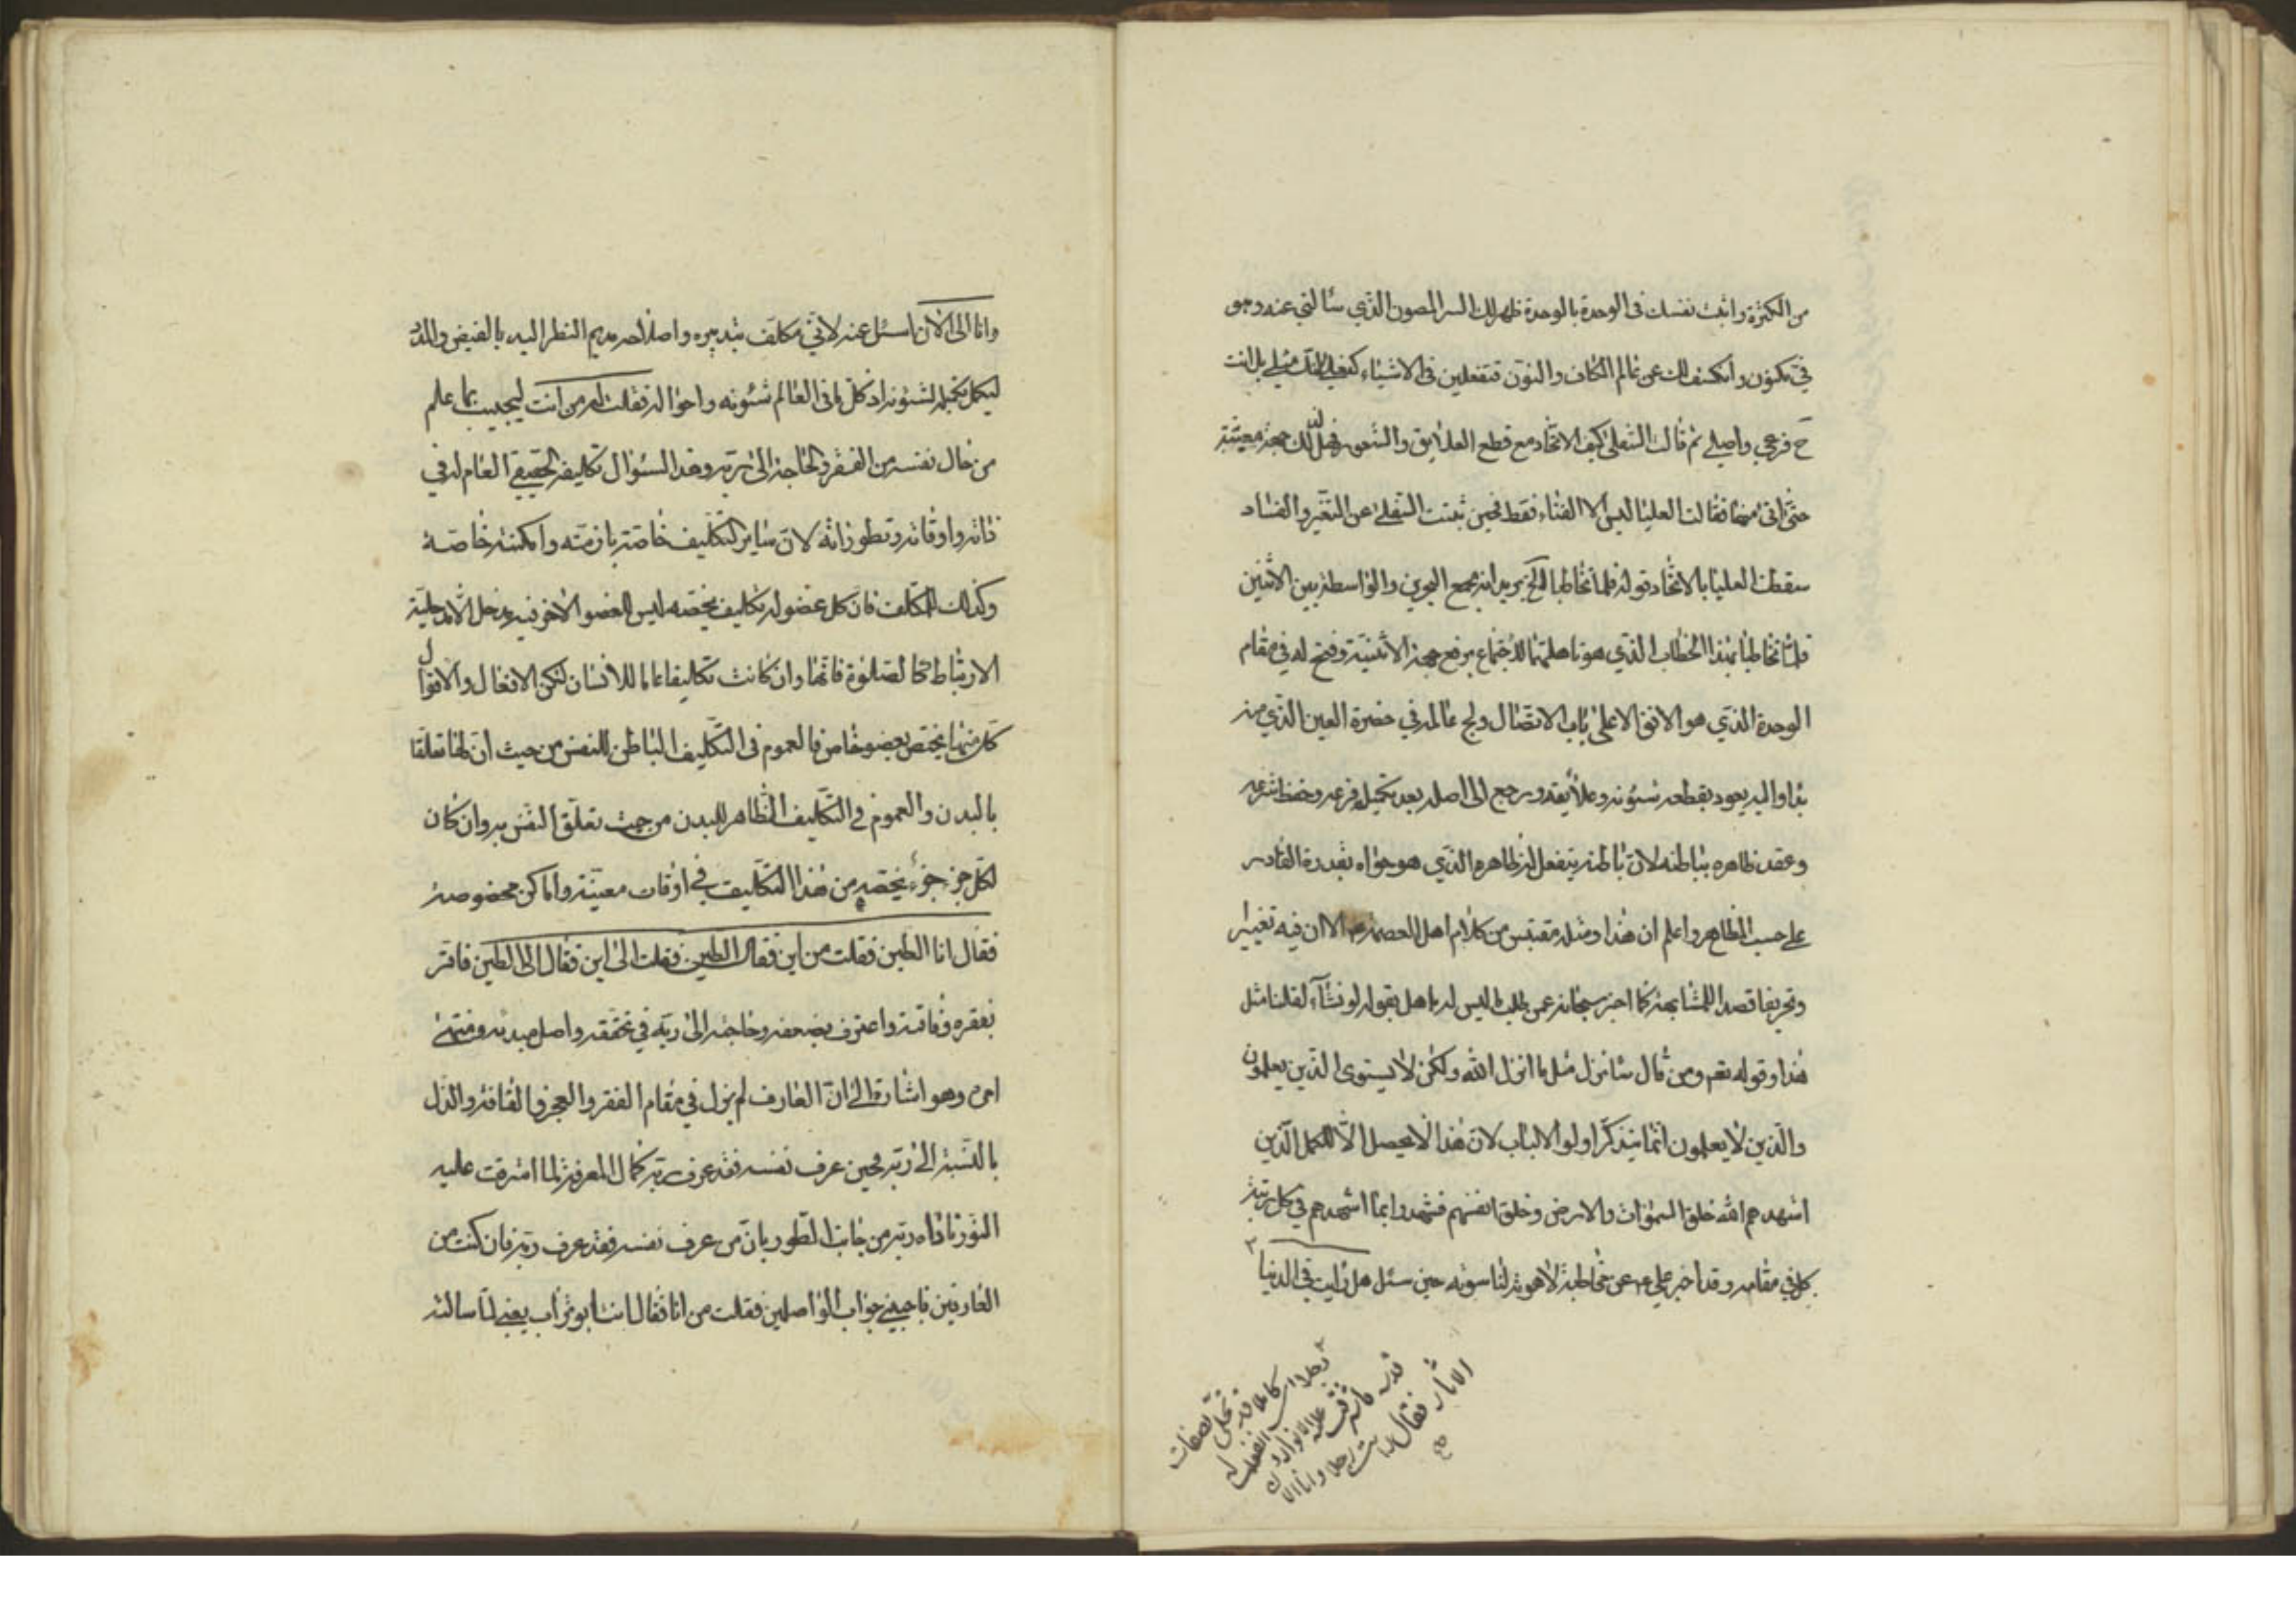 من الكثرة واثبت نفسك فى الوحدة بالوحدة ظهر لك السر المصون الذي سألتني عنه وهو
في تكون وانكشف لك عن عالم الكاف والنون فتفعلين فى الاشياء بل انت
ح فرعي واصلي ثم قالت السفلى كيف الاتحاد مع قطع العلايق والشعور فهل لذلك جهة معينة
حتى اتى منها فقالت العليا ليس الا الفناء فقط فحين ثبتت السفلى عن التغير والفساد
سقطت العليا بالاتحاد قوله فلما تخاطبا الخ يريد انه مجمع البحرين والواسطة بين الاثنين
فلما تخاطبا بهذا الخطاب الذي هو للاجتماع برفع جهة الاثنينية وفتح له في مقام
الوحدة الذي هو الافق الاعلى باب الاتصال ولج عالمه في حضرة العين الذي منه
بدا واليه يعود بقطعه شئونه وعلايقه ورجع الى اصله بعد تكميل فرعه وحفظ شرعه
وعقد ظاهره بباطنه لان باطنه يتفعل لظاهره الذي هو حواه بقدرة القادر
على حسب الظاهر واعلم ان هذا ومثله مقتبس من كلام اهل العصمة ع الا ان فيه تغييرا
وتحريفا قصدا للمشابهة كما اخبر سبحانه عمن طلب ما ليس له باهل بقوله لو نشآء لقلنا مثل
هذا وقوله تعم ومن قال سانزل مثل ما انزل الله ولكن لا يستوى الذين يعلمون
والذين لا يعلمون انما يتذكر اولو الالباب لان هذا لا يحصل الا للكمل الذين
اشهدهم الله خلق السموات والارض وخلق انفسهم فشهدوا بما اشهدهم في كل رتبة
كل في مقامه وقد اخبر علي ع عن مخاطبة لاهوته لناسوته حين سئل هل رايت في الدنيا
رجلا
فقال رايت رجلا وانا الى الان
وانا الى الان اسئل عنه لاني مكلف بتدبيره واصلاحه مديم النظر اليه بالفيض والمدد
ليكمل تكميله لشئونه اذ كل ما فى العالم شئونه واحواله فقلت له من انت ليجيب بما علم
من حال نفسه من الفقر والحاجة الى ربه وهذا السئوال تكليفه الحقيقي العام له في
ذاته واوقاته وتطوراته لان ساير التكليف خاصة بازمنه وامكنة خاصة
وكذلك المكلف فان كل عضو له تكليف يخصه ليس للعضو الاخر فيه مدخل الا مدخلية
الارتباط كالصلوة فانها وان كانت تكليفا عاما للانسان لكن الافعال والاقوال
كل منها يختص بعضو خاص فالعموم فى التكليف الباطن للنفس من حيث ان لها تعلقا
بالبدن والعموم في التكليف الظاهر للبدن من حيث تعلق النفس به وان كان
لكل جزء جزء يختصه من هذا التكليف في اوقات معينة واماكن مخصوصة
فقال انا الطين فقلت من اين فقال الطين فقلت الى اين فقال الى الطين فاقر
بفقره وفاقته واعترف بضعفه وحاجته الى ربه في تحققه واصل مبدئه ومنتهى
امره وهو اشارة الى ان العارف لم يزل في مقام الفقر والعجز والفاقة والذل
بالنسبة الى ربه فحين عرف نفسه فقد عرف ربه كمال المعرفة لما اشرقت عليه
النور ناداه ربه من جانب الطور بان من عرف نفسه فقد عرف ربه فان كنت من
العارفين فاجبني جواب الواصلين فقلت من انا فقال انت ابو تراب يعني لما سالته